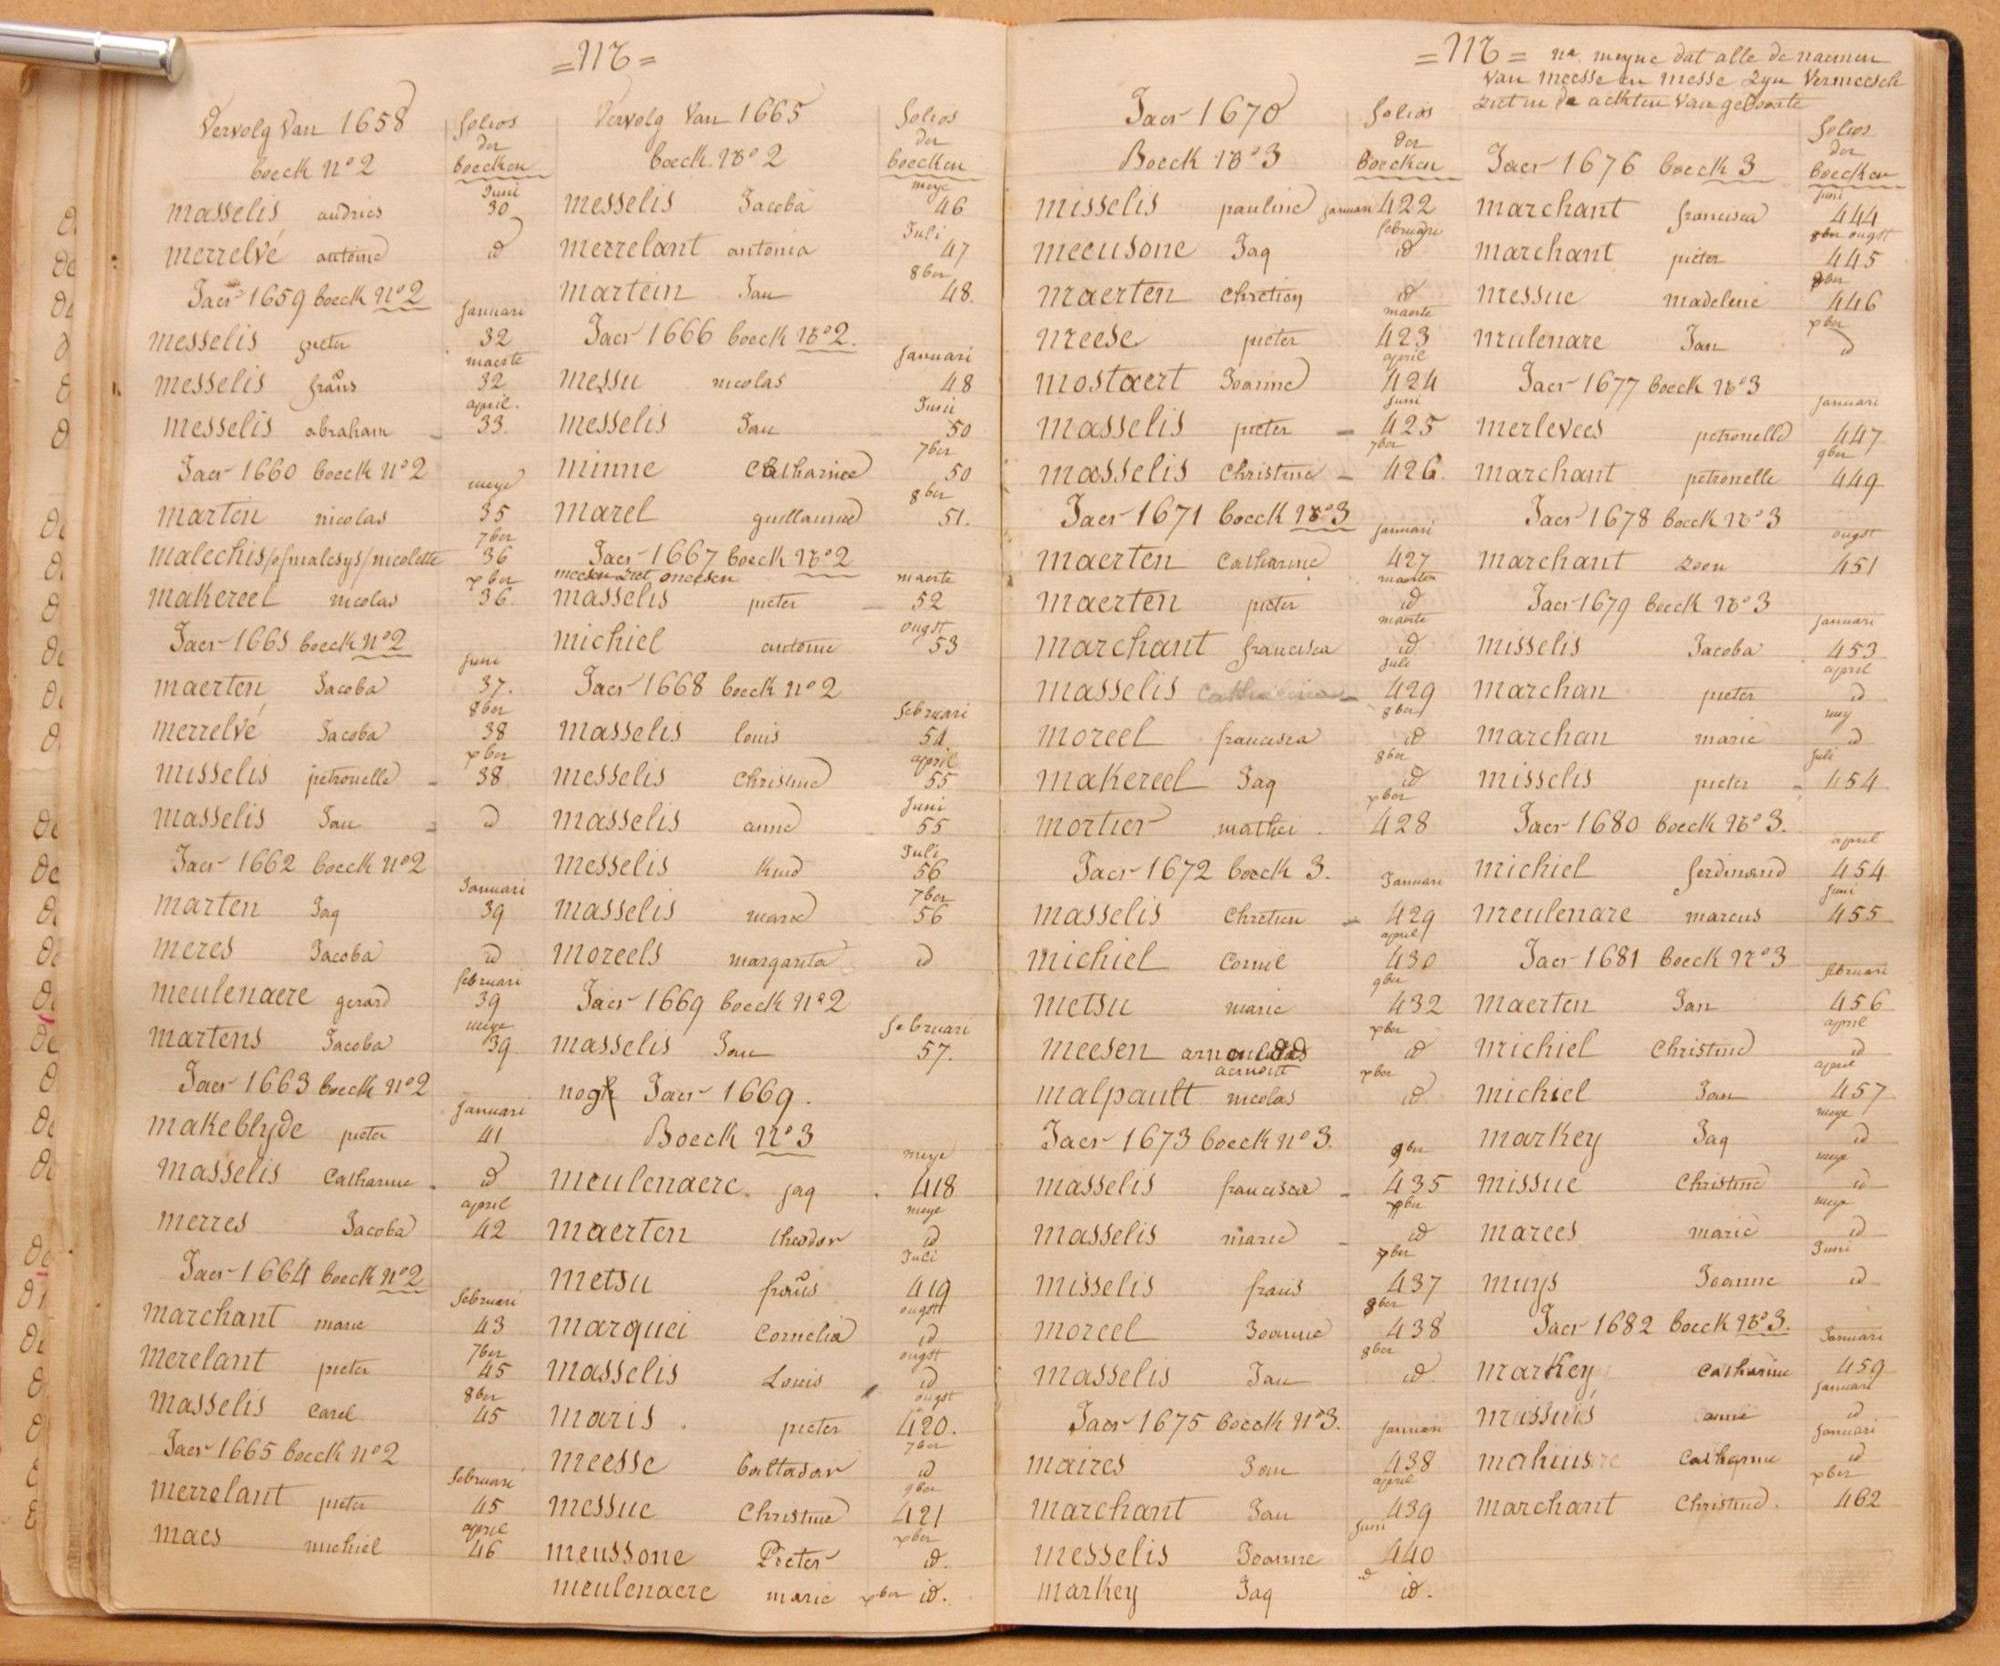 = M =
Vervolg Van 1658
boeck n° 2
folios
der
boecken
masselis andries juni 30
merrelvé antoine id
Jaer 1659 boeck n° 2
messelis pieter januari 32
messelis frans maerte 32
messelis abraham april 33
Jaer 1660 boeck n° 2
marten nicolas meye 35
malechis /of malesys/ nicolette 7ber 36
makereel nicolas xber 36
Jaer 1661 boeck n° 2
maerten Jacoba juni 37.
merrelvé Jacoba 8ber 38
misselis petronelle xber 38
masselis Jan id
Jaer 1662 boeck n° 2
marten Jaq Januari 39
meres Jacoba id
meulenaere gerard februari 39
martens Jacoba meye 39
Jaer 1663 boeck n° 2
makeblyde pieter januari 41
masselis Catharine id
merres Jacoba april 42
Jaer 1664 boeck n° 2
marchant marie februari 43
merelant pieter 7ber 45
masselis Carel 8ber 45
Jaer 1665 boeck n° 2
merrelant pieter februari 45
maes michiel april 46
Vervolg Van 1665
boeck n° 2
folios
der
boecken
messelis Jacoba meye 46
merrelant antonia Juli 47
martein Jan 8ber 48.
Jaer 1666 boeck n° 2.
messu nicolas januari 48
messelis Jan Junii 50
minne Catharine 7ber 50
marel guillaume 8ber 51.
Jaer 1667 boeck n° 2
meesen ziet oneesen
masselis pieter maerte 52
michiel antoine ougst 53
Jaer 1668 boeck n° 2
masselis louis februari 54
messelis Christine april 55
masselis anne Juni 55
messelis kind Juli 56
masselis marie 7ber 56
moreels margarita id
Jaer 1669 boeck n° 2
masselis Jan februari 57.
nogh Jaer 1669.
Boeck n° 3
meulenaere. jaq meye 418
maerten theodor meye id
metsu frans Juli 419
marquei Cornelia ougst id
masselis Louis ougst id
maris. pieter ougst 420.
meesse baltasar 7ber id
messue Christine 9ber 421
meussone Pieter xber id.
meulenaere marie xber id.
= M = na meyne dat alle de naemen
van meesse en messe zyn Vermeesch
ziet in de ackten van geboorte
Jaer 1670
Boeck n° 3
folios
der
boecken
misselis pauline januari 422
meeusone Jaq februari id
maerten Chretien id
meese pieter maerte 423
mostaert Joanne april 424
masselis pieter juni 425
masselis Christine 7ber 426.
Jaer 1671 boeck n° 3
maerten Catharine januari 427
maerten pieter maerte id
marchant francisca maerte id
masselis Juli 429
moreel francisca 8ber id
makereel Jaq 8ber id
mortier mathei xber 428
Jaer 1672 boeck 3.
masselis Chretien Januari 429
michiel Cornil april 430
metsu marie 9ber 432
meesen xber id
aernoitt
malpautt nicolas xber id
Jaer 1673 boeck n° 3.
masselis francisca 9ber 435
masselis marie xber id
misselis frans 7ber 437
moreel Joanne 8ber 438
masselis Jan 8ber id
Jaer 1675 boeck n° 3.
maires Jan januari 438
marchant Jan april 439
messelis Joanne juni 440
markey Jaq id id.
Jaer 1676 boeck 3
folios
der
boecken
marchant francisca juni 444
marchant pieter ougst 445
messue madelene 9ber 446
meulenare Jan xber id
Jaer 1677 boeck n° 3
merlevees petronelle januari 447
marchant petronelle 9ber 449
Jaer 1678 boeck n° 3
marchant zoon ougst 451
Jaer 1679 boeck n° 3
misselis Jacoba januari 453
marchan pieter april id
marchan marie mey id
misselis pieter Juli 454
Jaer 1680 boeck n° 3.
michiel ferdinand april 454
meulenare marcus juni 455
Jaer 1681 boeck n° 3
maerten Jan februari 456
michiel Christine april id
michiel Jan april 457
markey Jaq meye id
missue Christine meye id
marees marie meye id
muys Joanne Juni id
Jaer 1682 boeck n° 3.
markey Catharine Januari 459
anne januari id
Catharine januari id
marchant Christine. xber 462